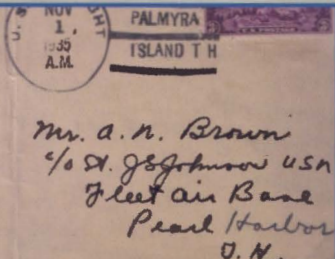 U.S.
NOV
1,
1935
A.M.
PALMYRA
ISLAND T H
U.S. POSTAGE
Mr. A. N. Brown
c/o St. JSJohnson USN
Fleet Air Base
Pearl Harbor
T. H.